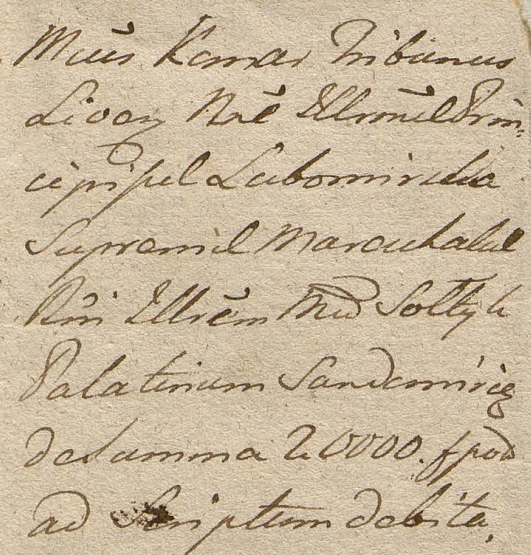 Mcus Komar Tribunus
Livoę Nõe Illrmæ Prin,
cipissæ Lubomirska
Supremæ Marschalcæ
Rñi Illrem Mcũ Sołtyk
Palatinum Sandomirię
de Summa 20000. fpol
ad Scriptum debita,